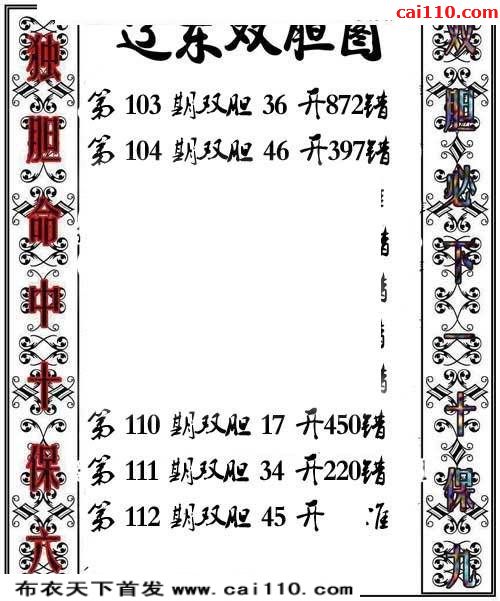 cai110.com
辽东双胆图
独胆命中十保六
第 103 期双胆 36 开872错
第 104 期双胆 46 开397错
第 110 期双胆 17 开450错
第 111 期双胆 34 开220错
第 112 期双胆 45 开 准
双胆必下一十保九
布衣天下首发 www.cai110.com